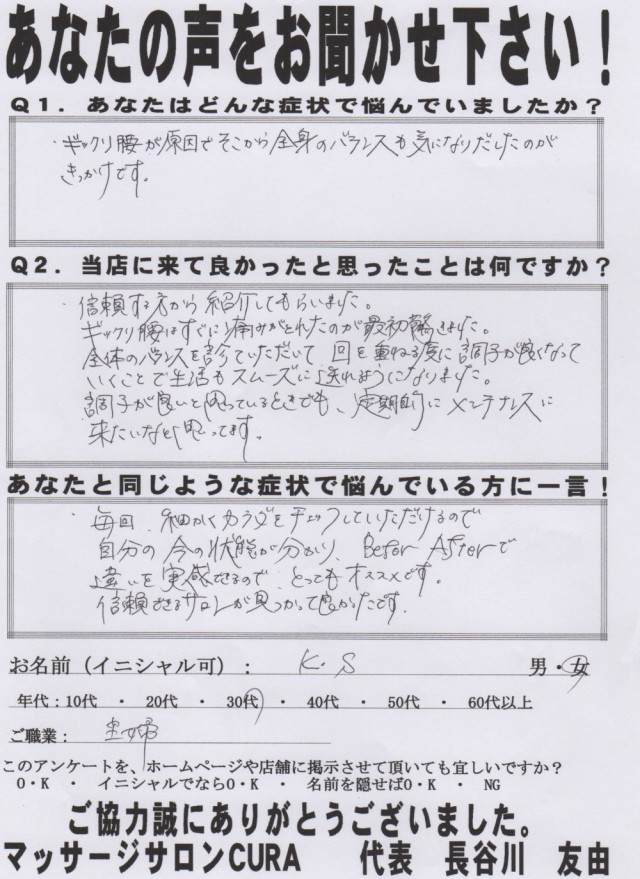 あなたの声をお聞かせ下さい!
Q1. あなたはどんな症状で悩んでいましたか?
・ギックリ腰が原因でそこから全身のバランスも気になりだしたのが
きっかけです。
Q2. 当店に来て良かったと思ったことは何ですか?
・信頼する方から紹介してもらいました。
ギックリ腰はすぐに痛みがとれたのが最初驚きました。
全体のバランスを診ていただいて 回を重ねる度に調子が良くなって
いくことで生活もスムーズに送れるようになりました。
調子が良いと思っているときでも、定期的にメンテナンスに
来たいなと思ってます。
あなたと同じような症状で悩んでいる方に一言!
・毎回、細かくカラダをチェックしていただけるので
自分の今の状態が分かり、Befor Afterで
違いを実感できるので、とってもオススメです。
信頼できるサロンが見つかって良かったです。
お名前(イニシャル可): K.S 男・女
年代:10代 ・ 20代 ・ 30代 ・ 40代 ・ 50代 ・ 60代以上
ご職業: 主婦
このアンケートを、ホームページや店舗に掲示させて頂いても宜しいですか?
O・K ・ イニシャルでならO・K ・ 名前を隠せばO・K ・ NG
ご協力誠にありがとうございました。
マッサージサロンCURA 代表 長谷川 友由